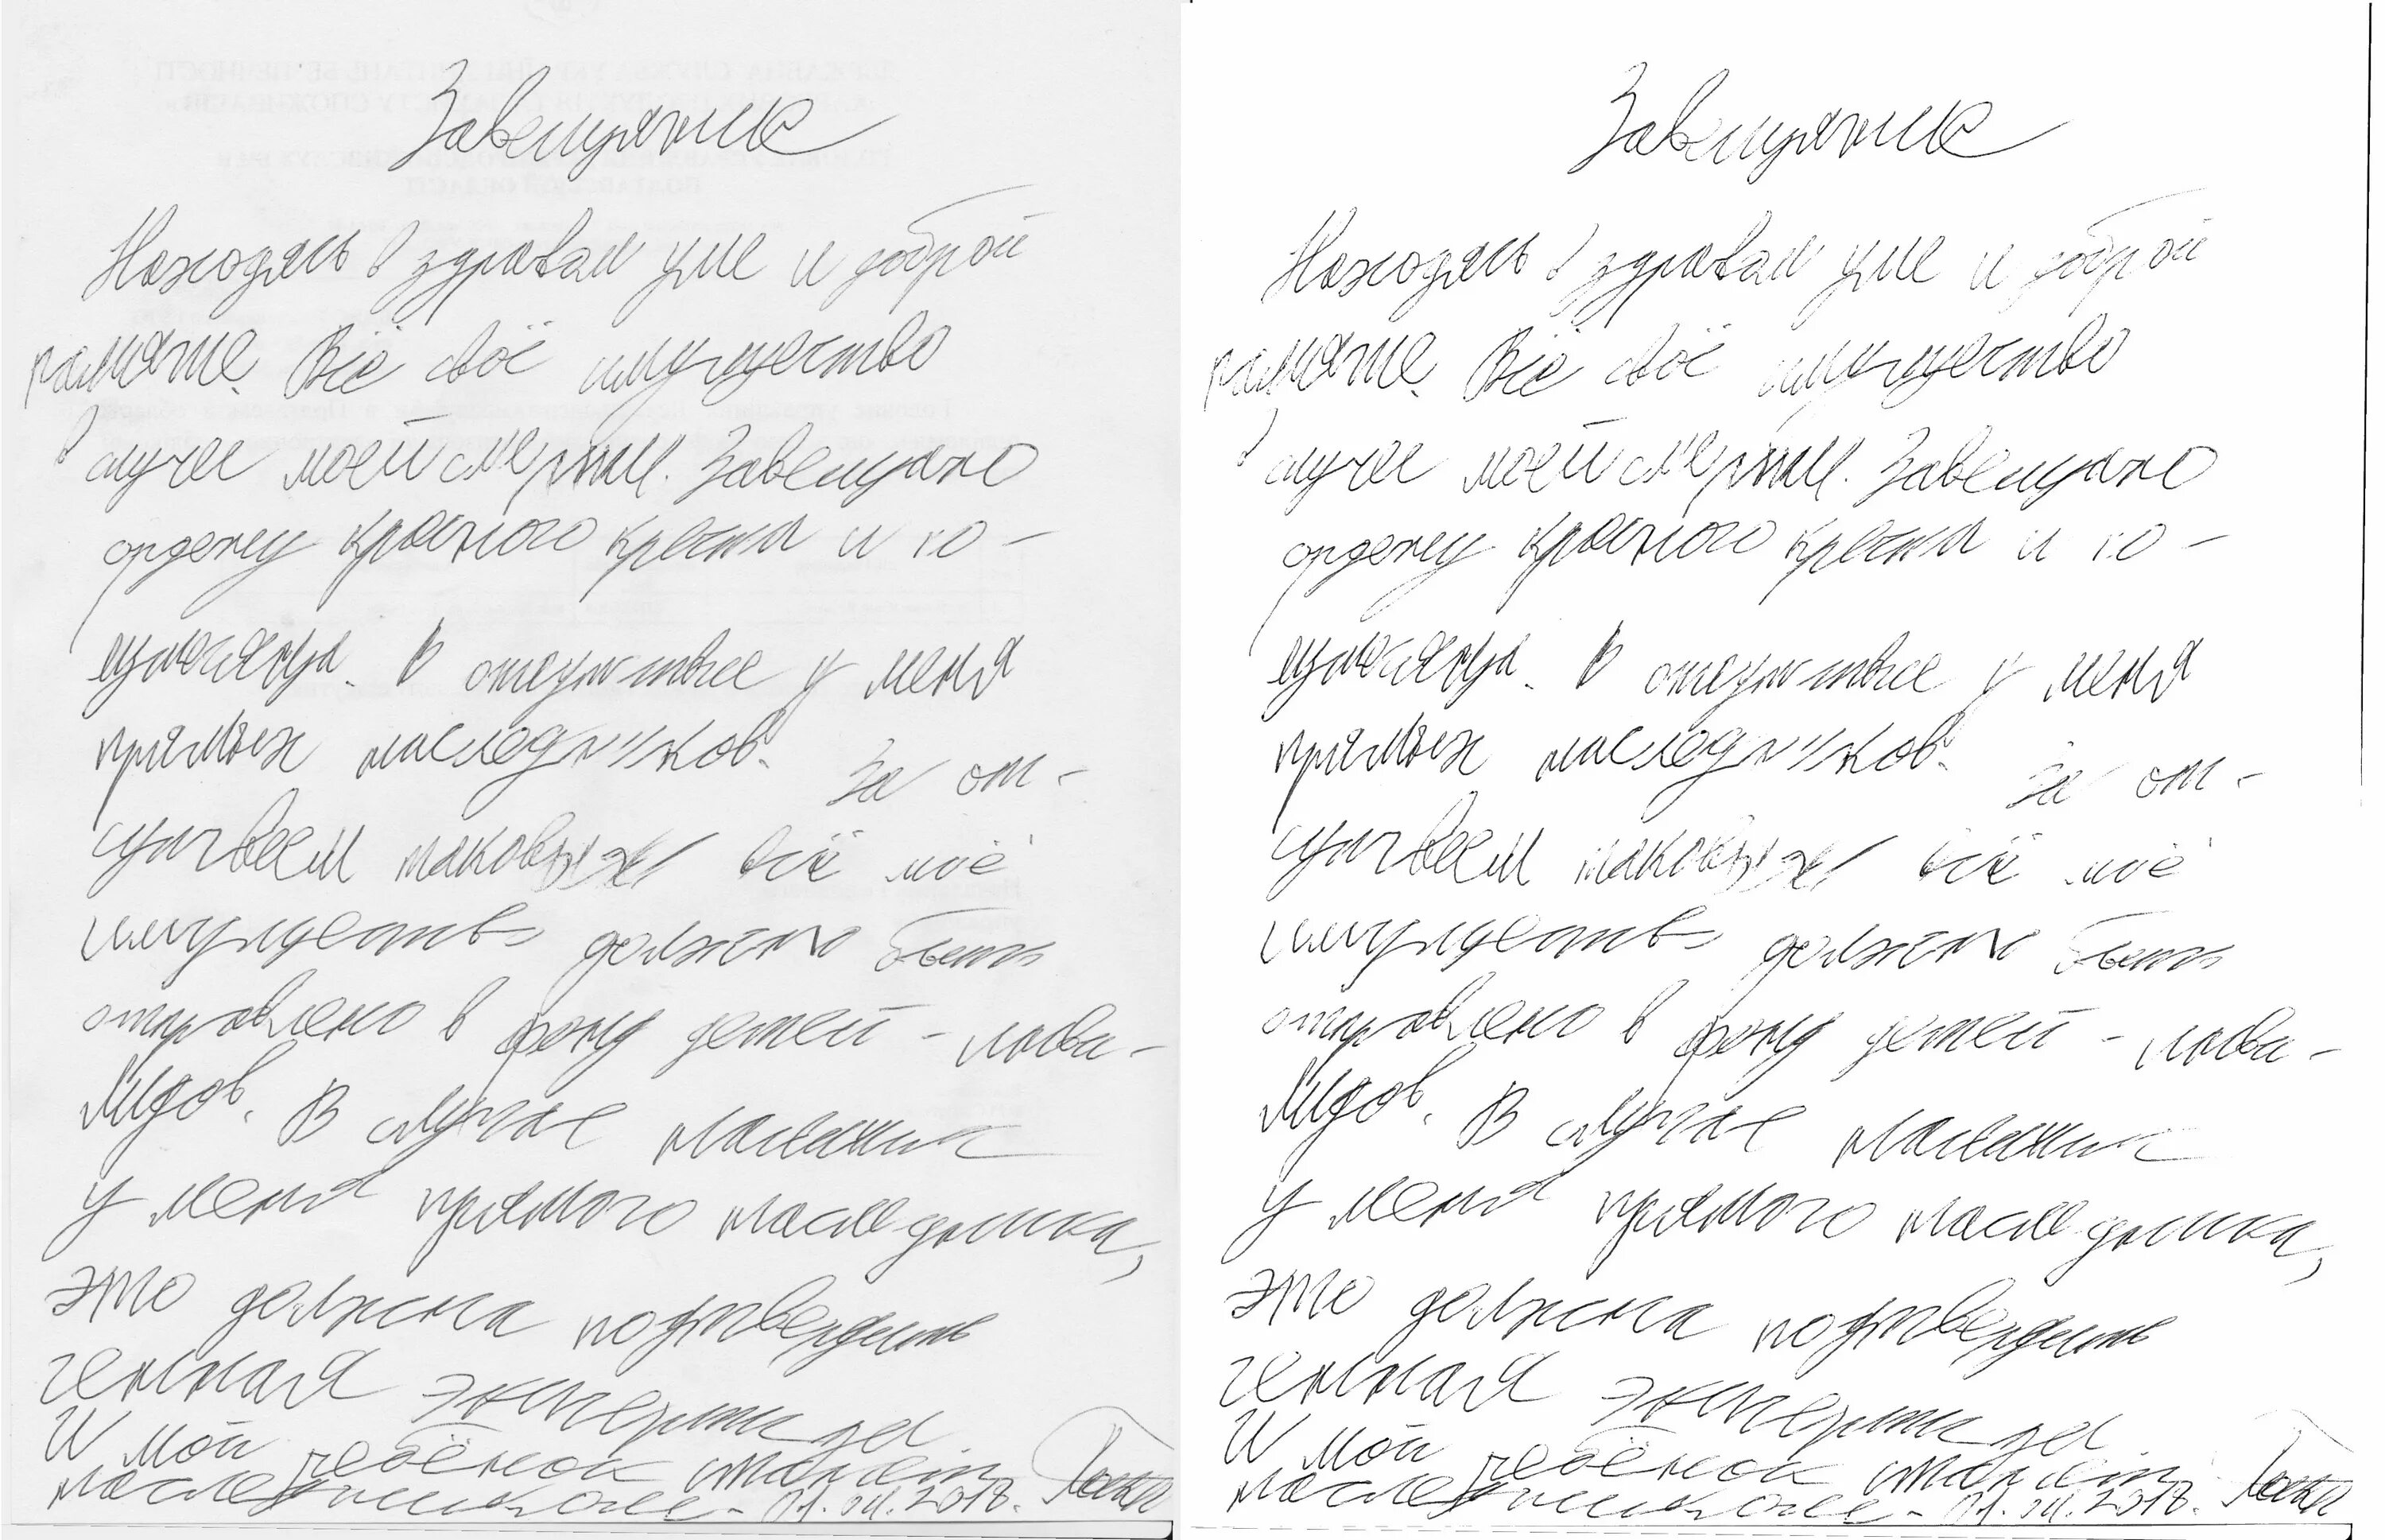 Завещание
Находясь в здравом уме и доброй
памяте. Всё своё имущество
В случее моей смерти. Завещаю
ордену красного креста и го-
сударства. В отсутствие у меня
прямых наследников. За от-
сутвеем таковых всё моё
имущество должно быть
отправлено в фонд детей - инва-
лидов. В случае наличия
у меня прямого наследника,
это должна подтвердить
генная экспертиза.
И мой ребёнок станет
наследником -
Завещание
Находясь в здравом уме и доброй
памяте. Всё своё имущество
В случее моей смерти. Завещаю
ордену красного креста и го-
сударства. В отсутствие у меня
прямых наследников. За от-
сутвеем таковых всё моё
имущество должно быть
отправлено в фонд детей - инва-
лидов. В случае наличия
у меня прямого наследника,
это должна подтвердить
генная экспертиза.
И мой ребёнок станет
наследником -